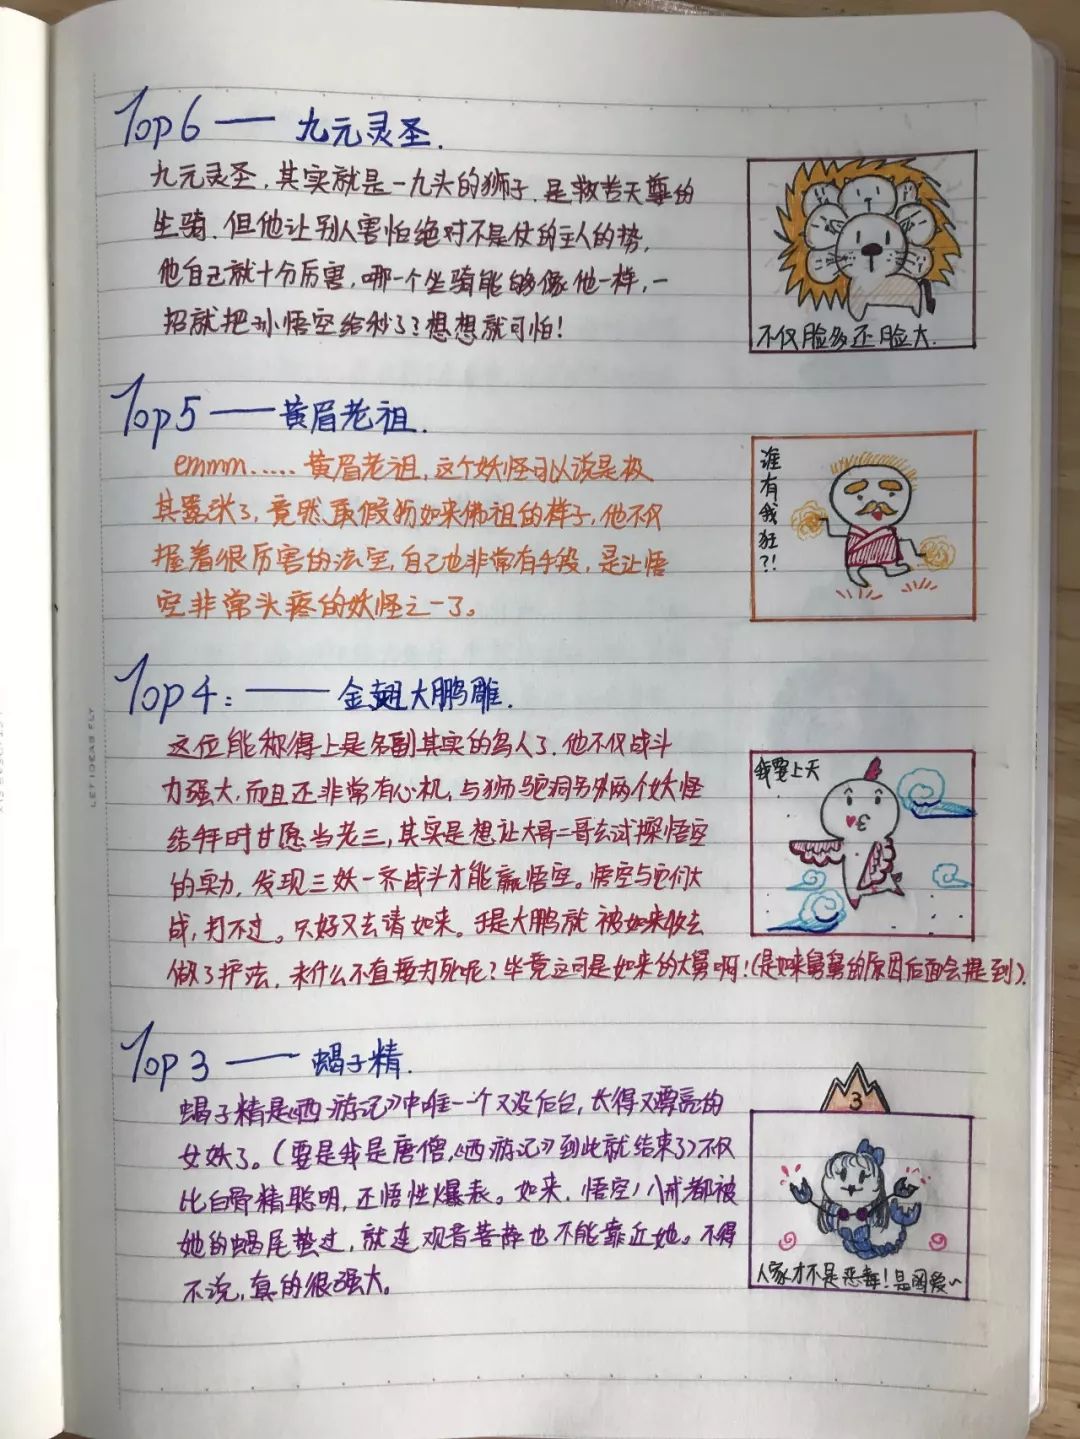 Top6 — 九元灵圣.
九元灵圣,其实就是一九头的狮子.是救苦天尊的
坐骑.但他让别人害怕绝对不是仗的主人的势,
他自己就十分厉害,哪一个坐骑能够像他一样,一
招就把孙悟空给秒了?想想就可怕!
不仅脸多还脸大.
Top5 — 黄眉老祖.
emmm......黄眉老祖,这个妖怪可以说是极
其嚣张了,竟然敢假扮如来佛祖的样子,他不仅
握着很厉害的法宝,自己也非常有手段,是让悟
空非常头疼的妖怪之一了。
谁有我狂?!
Top4: — 金翅大鹏雕.
这位能称得上是名副其实的鸟人了.他不仅战斗
力强大,而且还非常有心机,与狮驼洞另外两个妖怪
结拜时甘愿当老三,其实是想让大哥二哥去试探悟空
的实力,发现三妖一齐战斗才能赢悟空。悟空与它们大
战,打不过。只好又去请如来。于是大鹏就被如来收去
做了护法,为什么不直接打死呢?毕竟这可是如来的大舅啊!(是如来舅舅的原因后面会提到).
我要上天
Top3 — 蝎子精.
蝎子精是《西游记》中唯一个又没后台,长得又漂亮的
女妖了。(要是我是唐僧,《西游记》到此就结束了)不仅
比白骨精聪明,还悟性爆表。如来,悟空,八戒都被
她的蝎尾蛰过,就连观音菩萨也不能靠近她。不得
不说,真的很强大。
3
人家才不是恶毒!是
LET IDEAS FLY